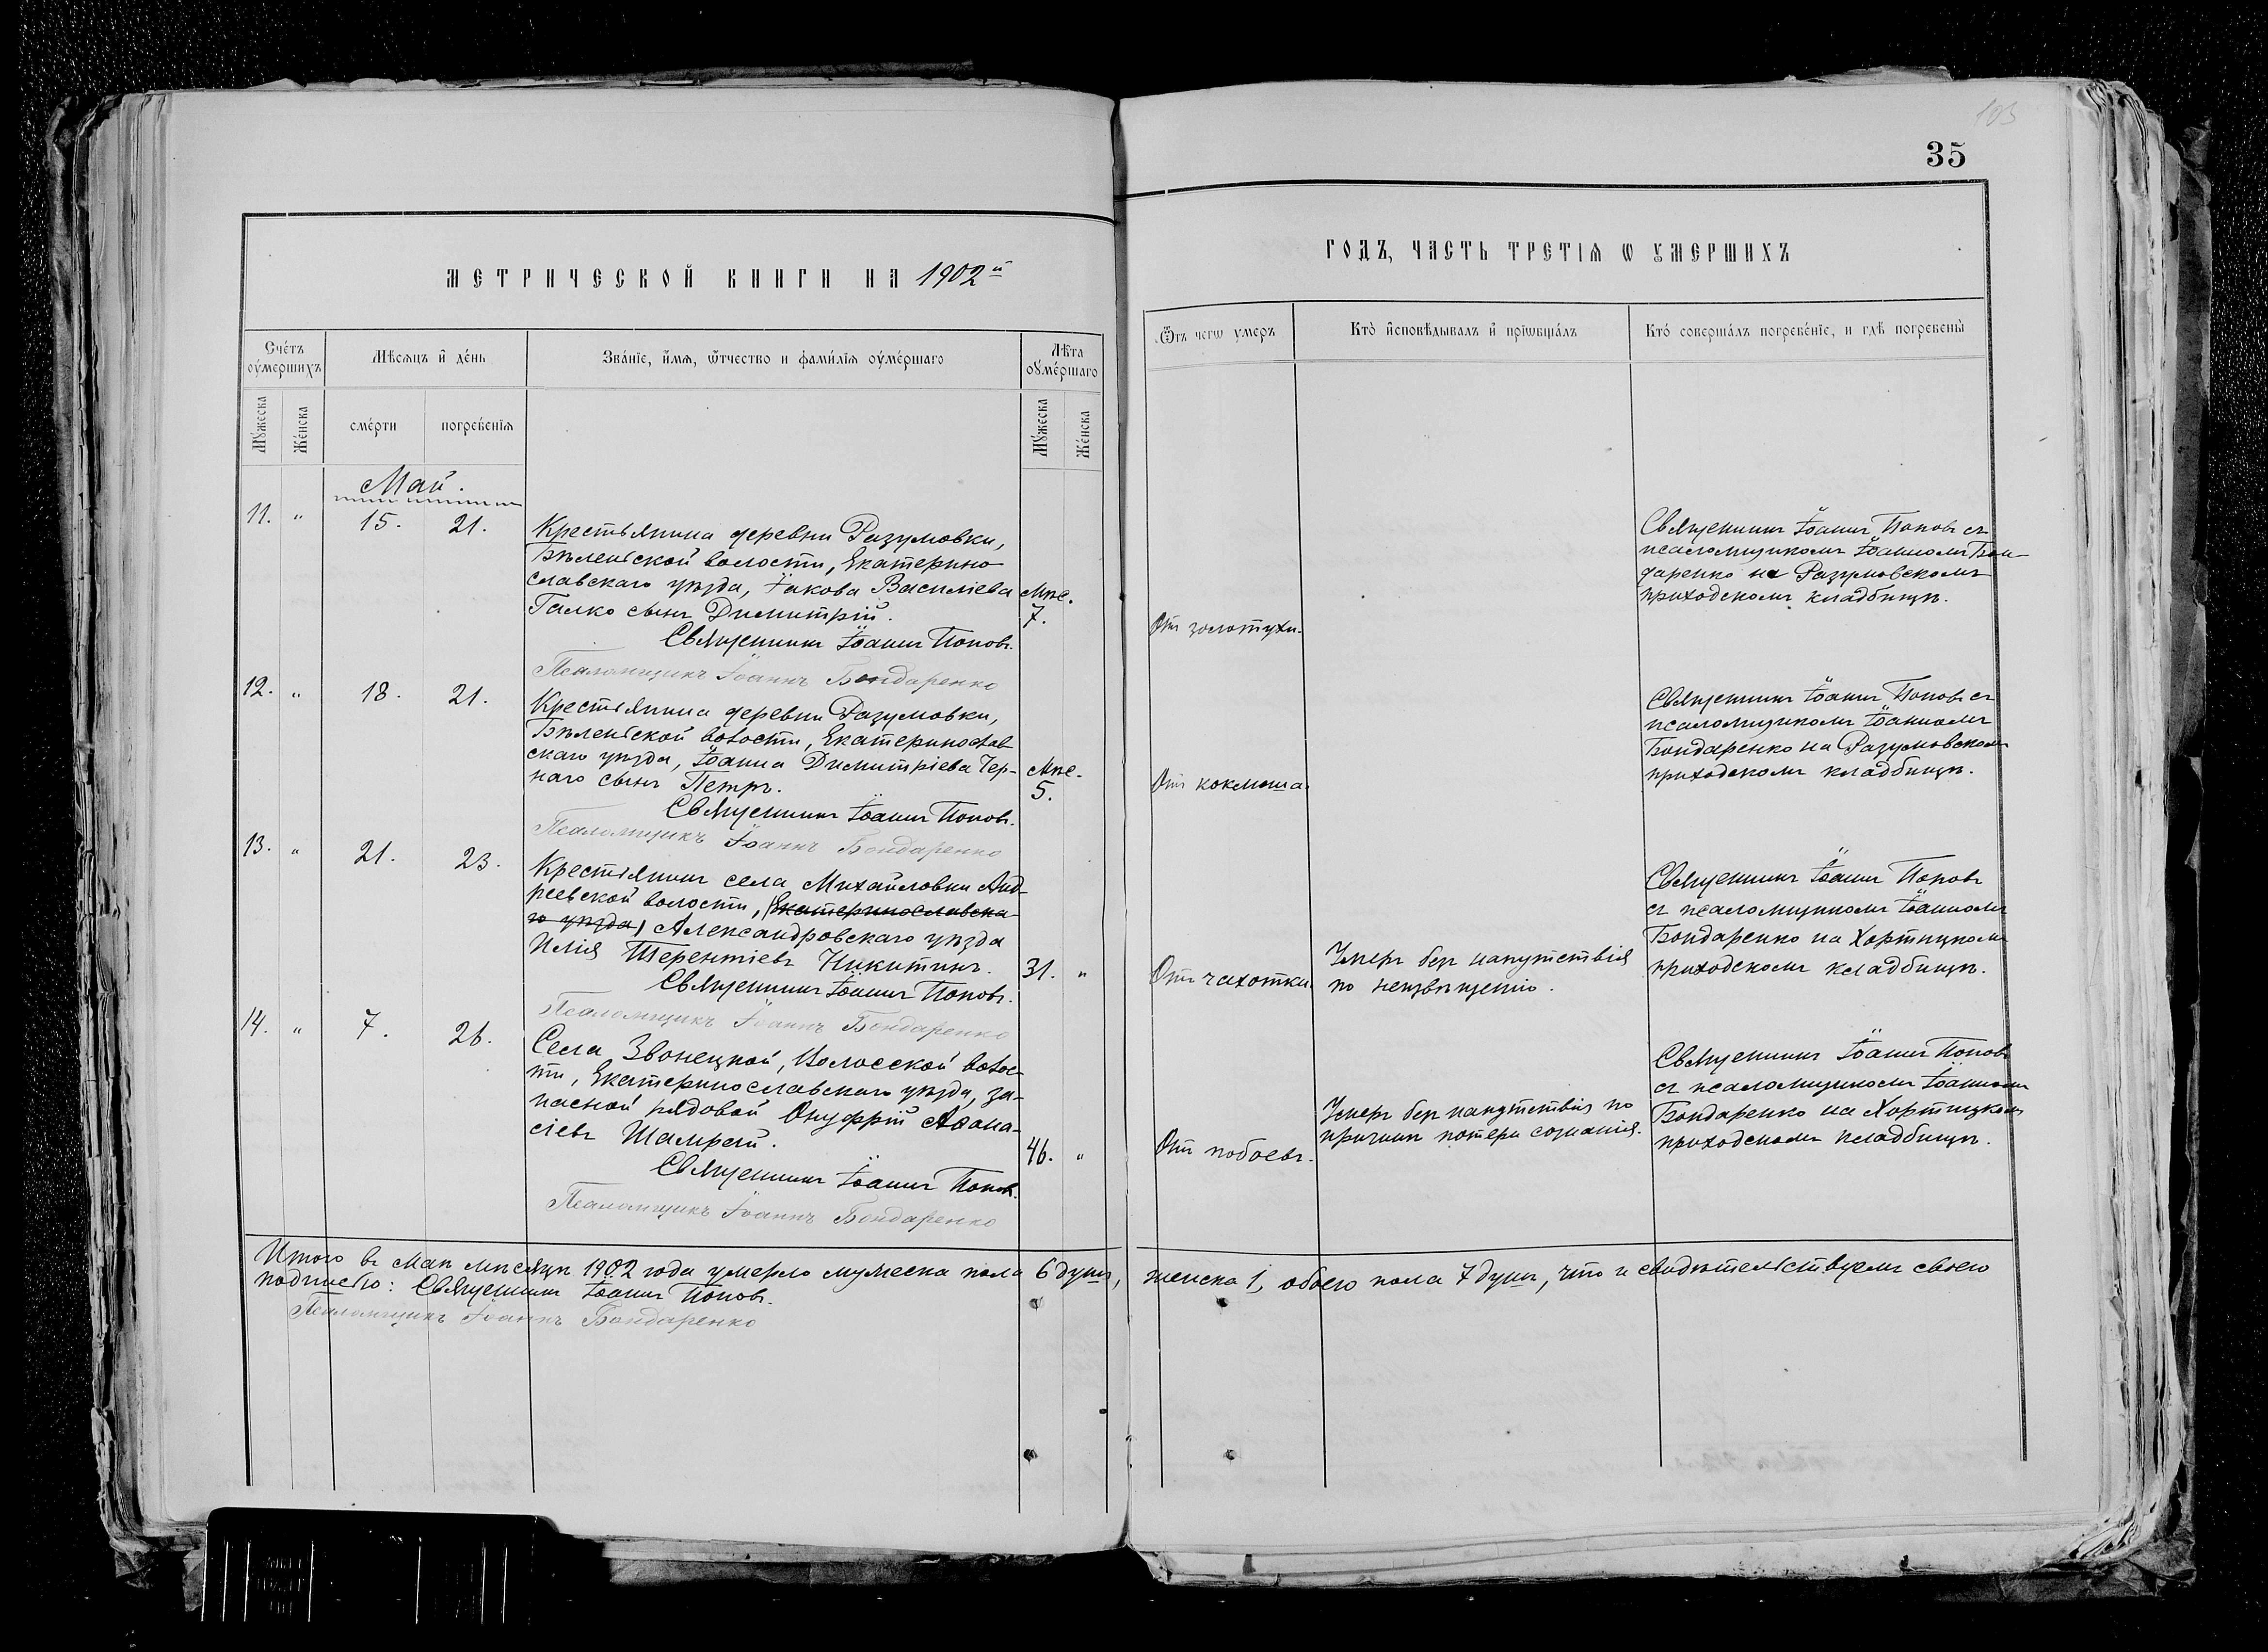 103
35
МЕТРИЧЕСКОЙ КНИГИ НА 1902й
ГОДЪ, ЧАСТЬ ТРЕТІѦ Ѡ УМЕРШИХЪ
Счéтъ оу҆мершихъ
Мѣсяцъ и҆ дéнь
Звáнїе, и҆́мѧ, ѻ҆́тчество и фамѝлїѧ оу҆мéршагѡ
Лѣта оу҆мéршагѡ
Ѿъ чегѡ умеръ
Ктò и҆сповѣ́дывалъ и҆ прїѡбщáлъ
Ктó совершáлъ погребéнїе, и гдѣ̀ погребены̀
Му́жеска
Жéнска
смéрти
погребéнїѧ
Му́жеска
Жéнска
Май.
11. " 15. 21.
Крестьянина деревни Разумовки,
Бѣленьской волости, Екатерино-
славскаго уѣзда, Іакова Василіева
Галко сынъ Димитрій.
Священникъ Іоаннъ Поповъ.
Псаломщикъ Іоаннъ Бондаренко
Мѣс.
7.
Отъ золотухи.
Священникъ Іоаннъ Поповъ съ
псаломщикомъ Іоанномъ Бон-
даренко на Разумовскомъ
приходскомъ кладбищѣ.
12. " 18. 21.
Крестьянина деревни Разумовки,
Бѣленьской волости, Екатеринослав
скаго уѣзда, Іоанна Димитріева Чер-
наго сынъ Петръ.
Священникъ Іоаннъ Поповъ.
Псаломщикъ Іоаннъ Бондаренко
Мѣс.
5.
Отъ коклюша.
Священникъ Іоаннъ Поповъ съ
псаломщикомъ Іоанномъ
Бондаренко на Разумовскомъ
приходскомъ кладбищѣ.
13. " 21. 23.
Крестьянинъ села Михайловки Анд-
реевской волости, (Екатеринославска-
го уѣзда) Александровскаго уѣзда
Илія Терентіевъ Никитинъ.
Священникъ Іоаннъ Поповъ.
Псаломщикъ Іоаннъ Бондаренко
31. "
Отъ чахотки.
Умеръ безъ напутствія
по неизвѣщенію.
Священникъ Іоаннъ Поповъ
съ псаломщикомъ Іоанномъ
Бондаренко на Хортицкомъ
приходскомъ кладбищѣ.
14. " 7. 26.
Села Звонецкой, Волосской волос-
ти, Екатеринославскаго уѣзда, за-
пасной рядовой Онуфрій Аѳана-
сіевъ Шамрай.
Священникъ Іоаннъ Поповъ.
Псаломщикъ Іоаннъ Бондаренко
46. "
Отъ побоевъ.
Умеръ безъ напутствія по
причинѣ потери сознанія.
Священникъ Іоаннъ Поповъ
съ псаломщикомъ Іоанномъ
Бондаренко на Хортицкомъ
приходскомъ кладбищѣ.
Итого въ маѣ мѣсяцѣ 1902 года умерло мужеска пола 6 душъ, женска 1, обоего пола 7 душъ, что и свидѣтельствуемъ своею
подписью: Священникъ Іоаннъ Поповъ.
Псаломщикъ Іоаннъ Бондаренко